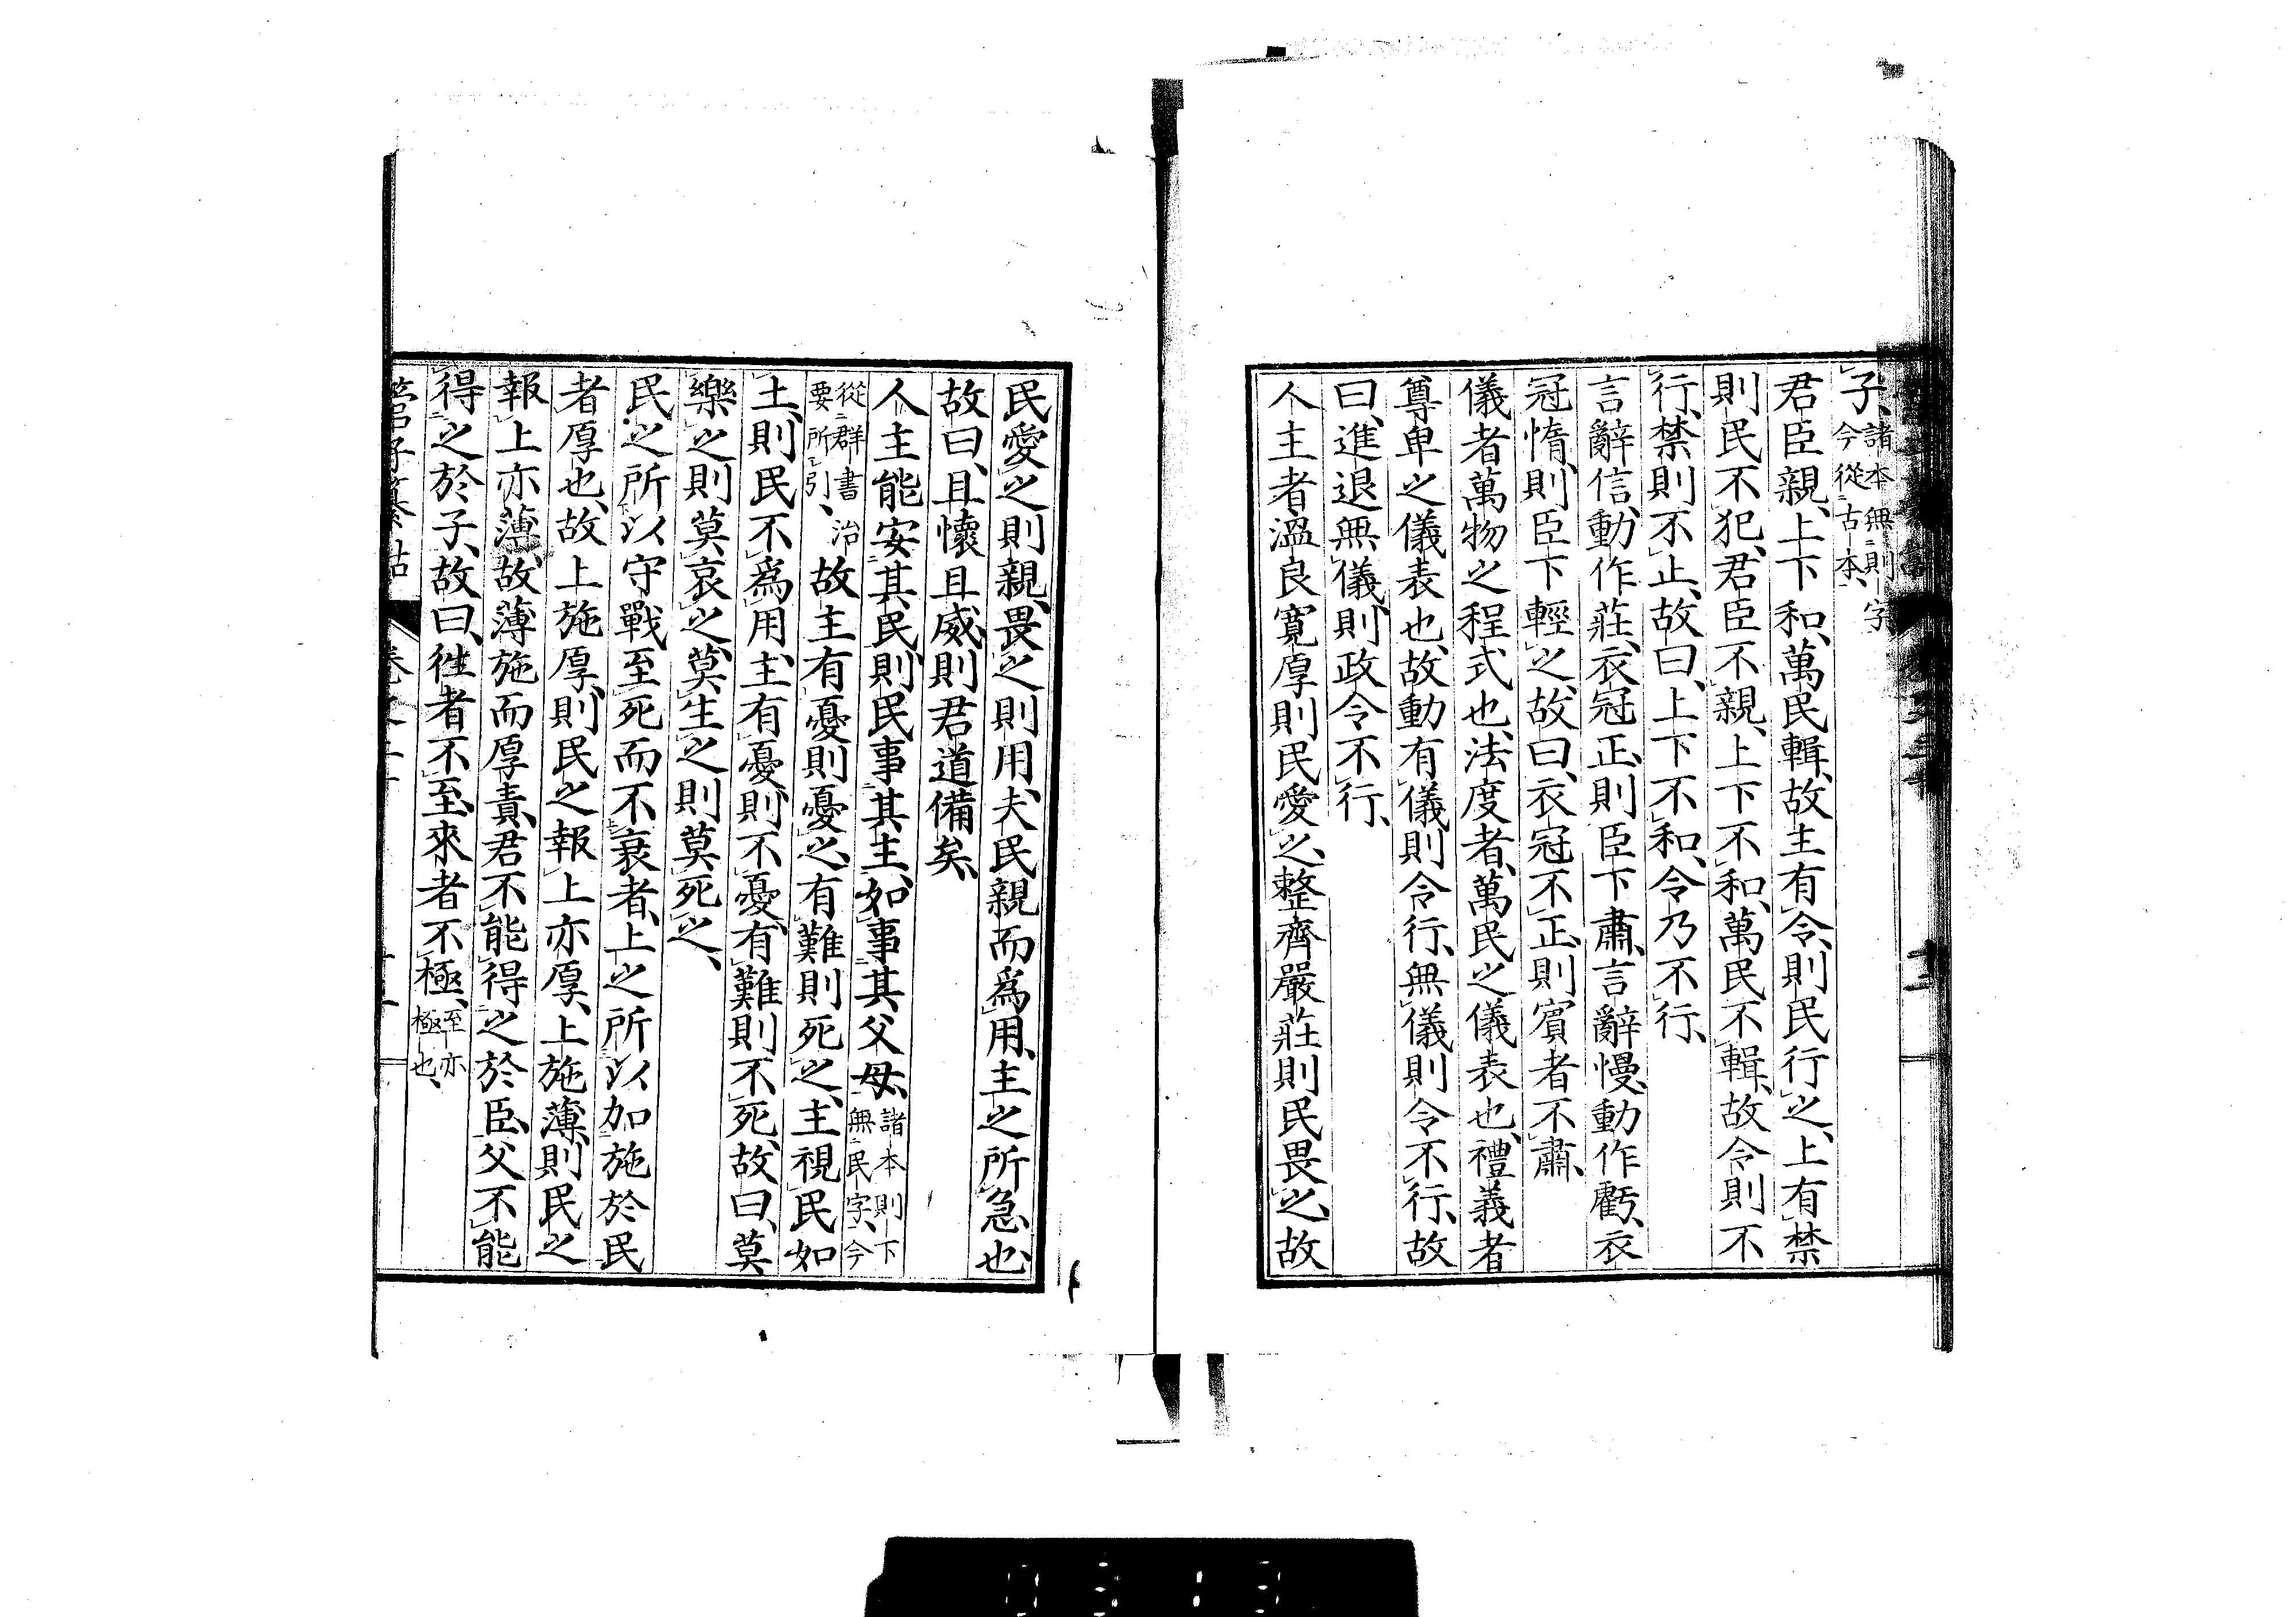 子、諸本無則字
今從古本、
君臣親、上下和、萬民輯、故主有令、則民行之、上有禁
則民不犯、君臣不親、上下不和、萬民不輯、故令則不
行、禁則不止、故曰、上下不和、令乃不行、
言辭信、動作莊、衣冠正、則臣下肅、言辭慢、動作虧、衣
冠惰、則臣下輕之、故曰、衣冠不正、則賓者不肅、
儀者萬物之程式也、法度者、萬民之儀表也、禮義者
尊卑之儀表也、故動有儀則令行、無儀則令不行、故
曰、進退無儀、則政令不行、
人主者溫良寬厚則民愛之、整齊嚴莊則民畏之、故
民愛之則親、畏之則用、夫民親而爲用、主之所急也、
故曰、且懷且威、則君道備矣、
人主能安其民、則民事其主、如事其父母、諸本則下
無民字、今
從群書治
要所引、故主有憂則憂之、有難則死之、主視民如
土、則民不爲用、主有憂則不憂、有難則不死、故曰、莫
樂之則莫哀之、莫生之則莫死之、
民之所以守戰至死而不衰者、上之所以加施於民
者厚也、故上施厚、則民之報上亦厚、上施薄、則民之
報上亦薄、故薄施而厚責、君不能得之於臣、父不能
得之於子、故曰、徃者不至、來者不極、至亦
極也、
管子纂詁 卷之二十